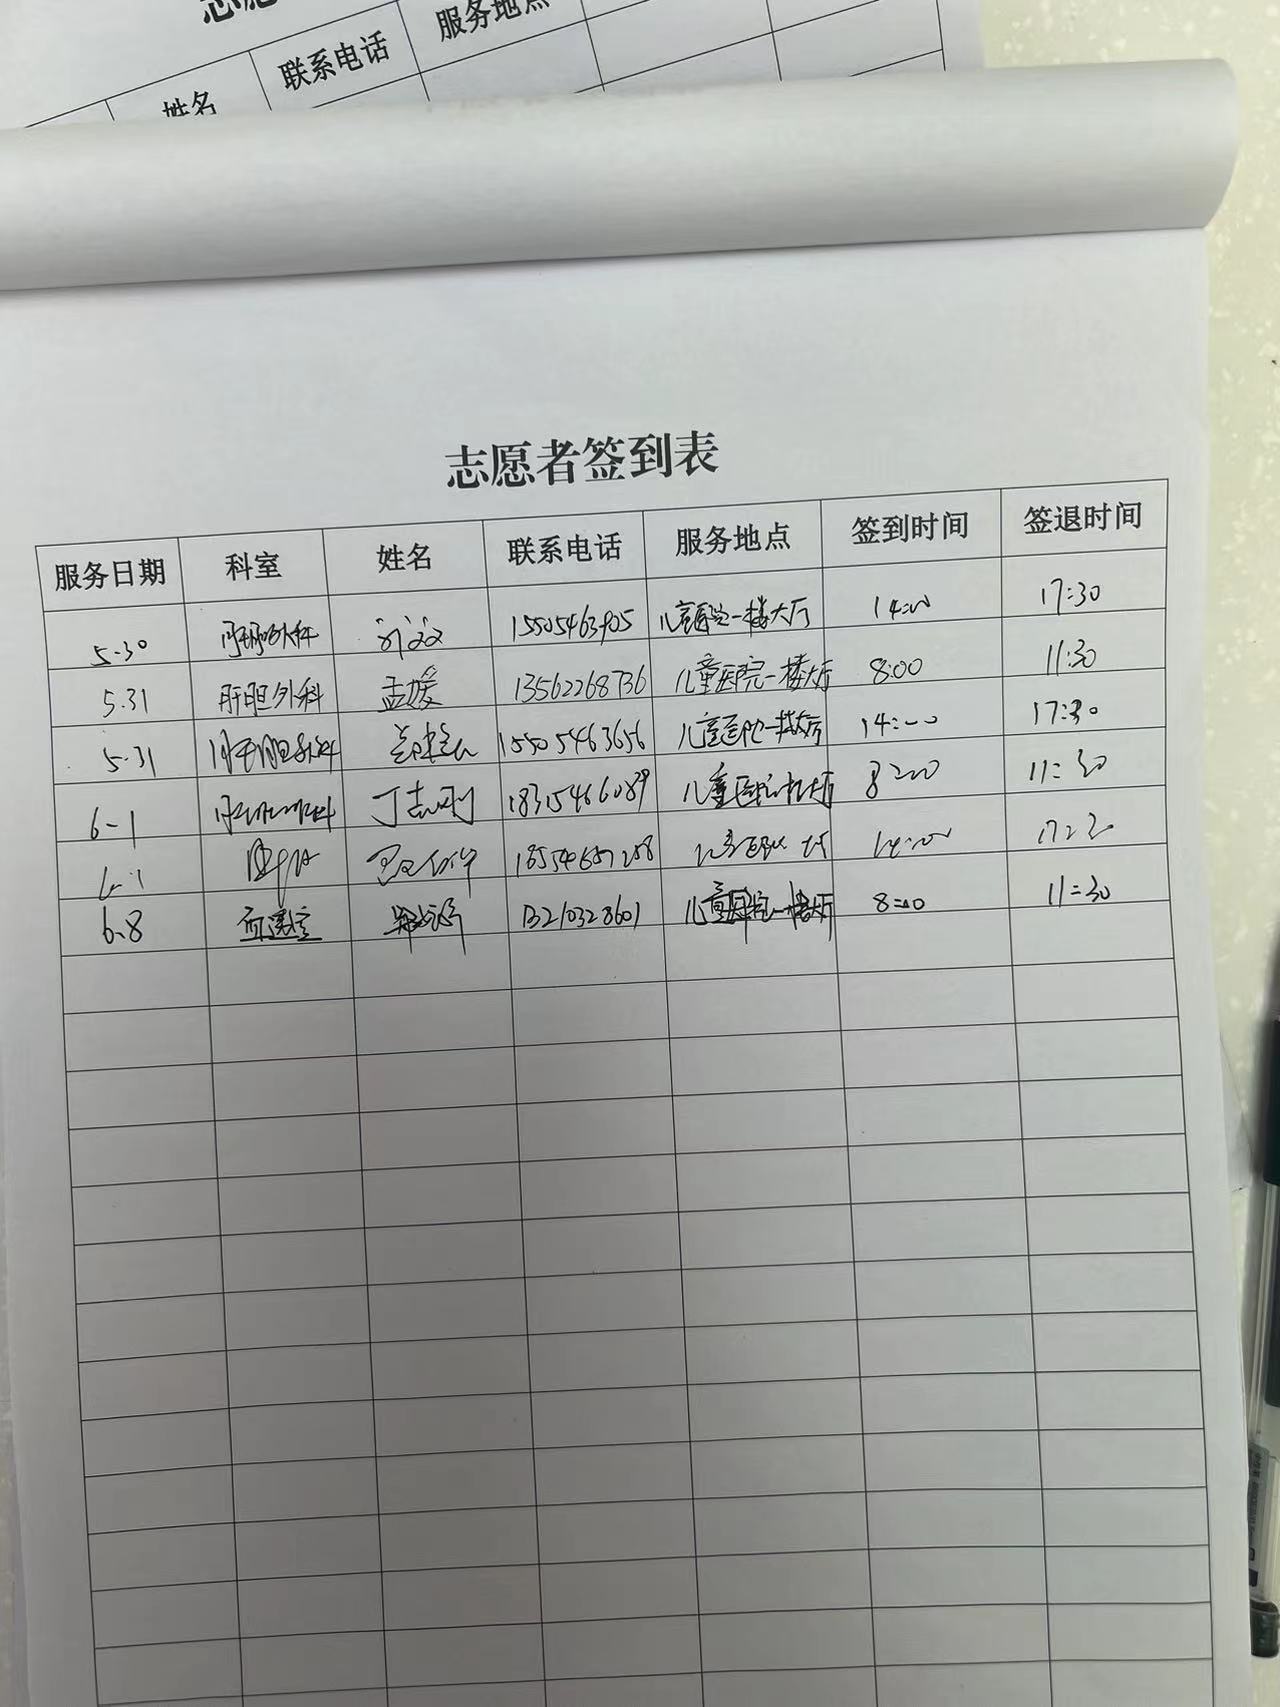 姓名 联系电话 服务地点
志愿者签到表
服务日期 科室 姓名 联系电话 服务地点 签到时间 签退时间
5.30 肝胆外科 15505463905 儿童医院一楼大厅 14:00 17:30
5.31 肝胆外科 孟媛 13562268736 儿童医院一楼大厅 8:00 11:30
5.31 肝胆外科 15505463656 儿童医院一楼大厅 14:00 17:30
6-1 丁志刚 18315466089 儿童医院一楼大厅 8:00 11:30
6.1 14:00
6.8 血透室 13210328601 儿童医院一楼大厅 8:00 11:30